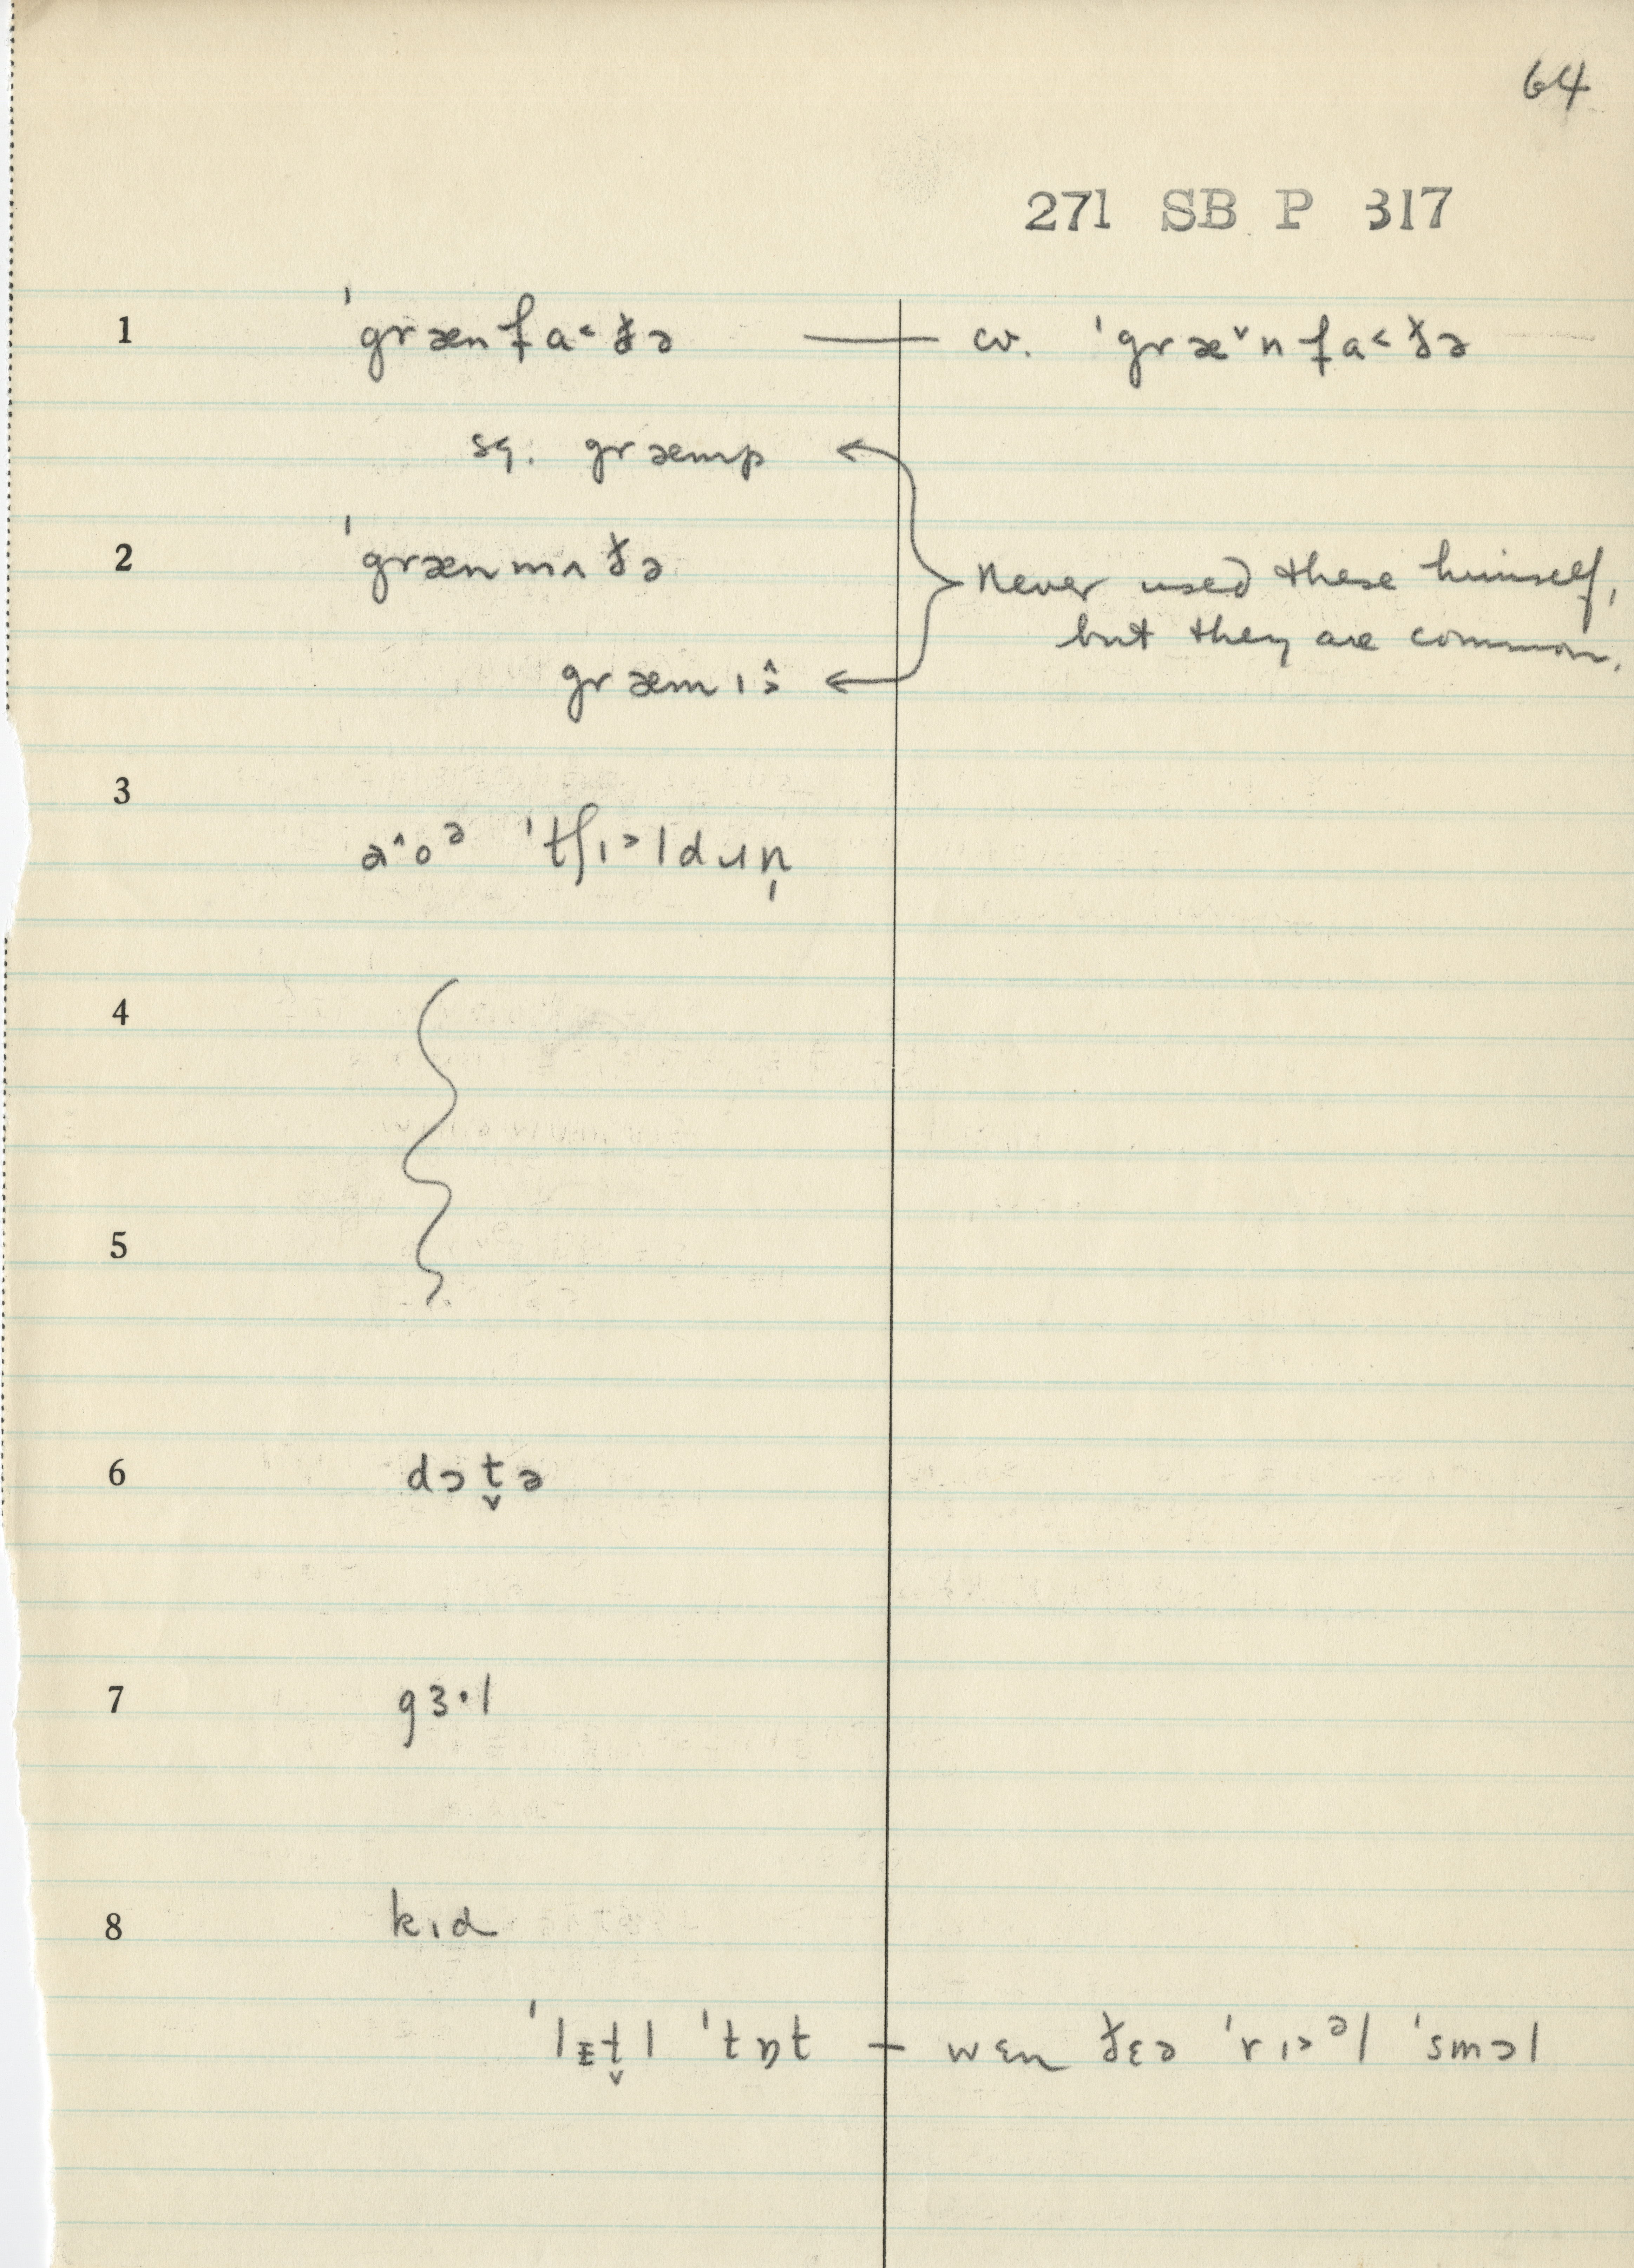 64
271 SB P 317
1 ˈgrænfa˂ðə — cv. ˈgræ˅nfa˂ðə
sq. græmp
2 ˈgrænmʌðə
Never used these himself,
but they are common.
græmɪ˃̂
3
a˄oᵊ ˈtʃɪ˃ldɹn̩
4
5
6 dɔt̬ə
7 gɜ·l
8 kɪd
ˈlɪt̬l ˈtɒt — wɛn ðɛə ˈrɪ˃ᵊl ˈsmɔl